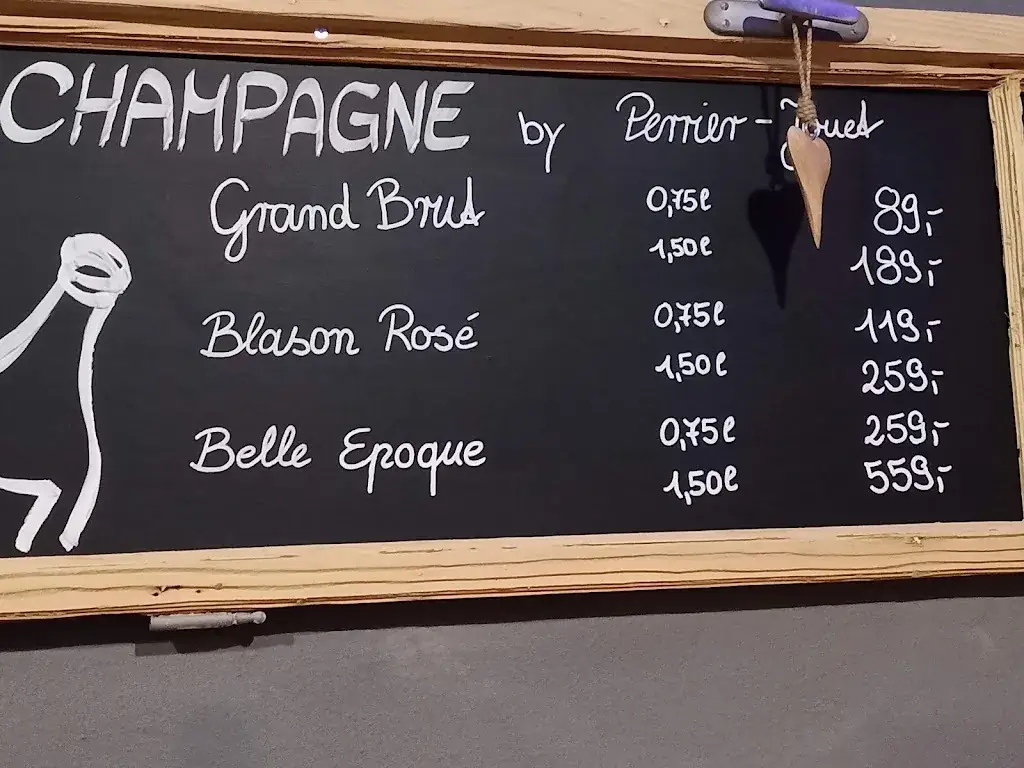 CHAMPAGNE by Perrier-Jouet
Grand Brut 0,75l 89,-
1,50l 189,-
Blason Rosé 0,75l 119,-
1,50l 259,-
Belle Epoque 0,75l 259,-
1,50l 559,-